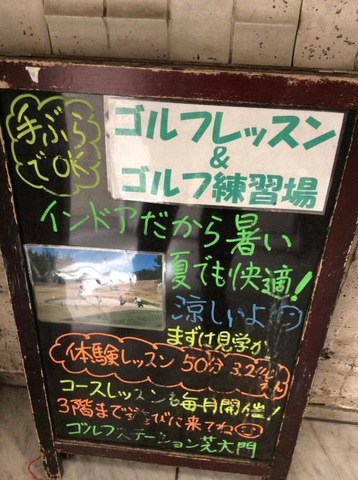 手ぶら
でOK
ゴルフレッスン
&
ゴルフ練習場
インドアだから暑い
夏でも快適!
涼しいよ
まずは見学か
体験レッスン 50分
コースレッスンも毎月開催!
3階まで遊びに来てね
ゴルフステーション芝大門